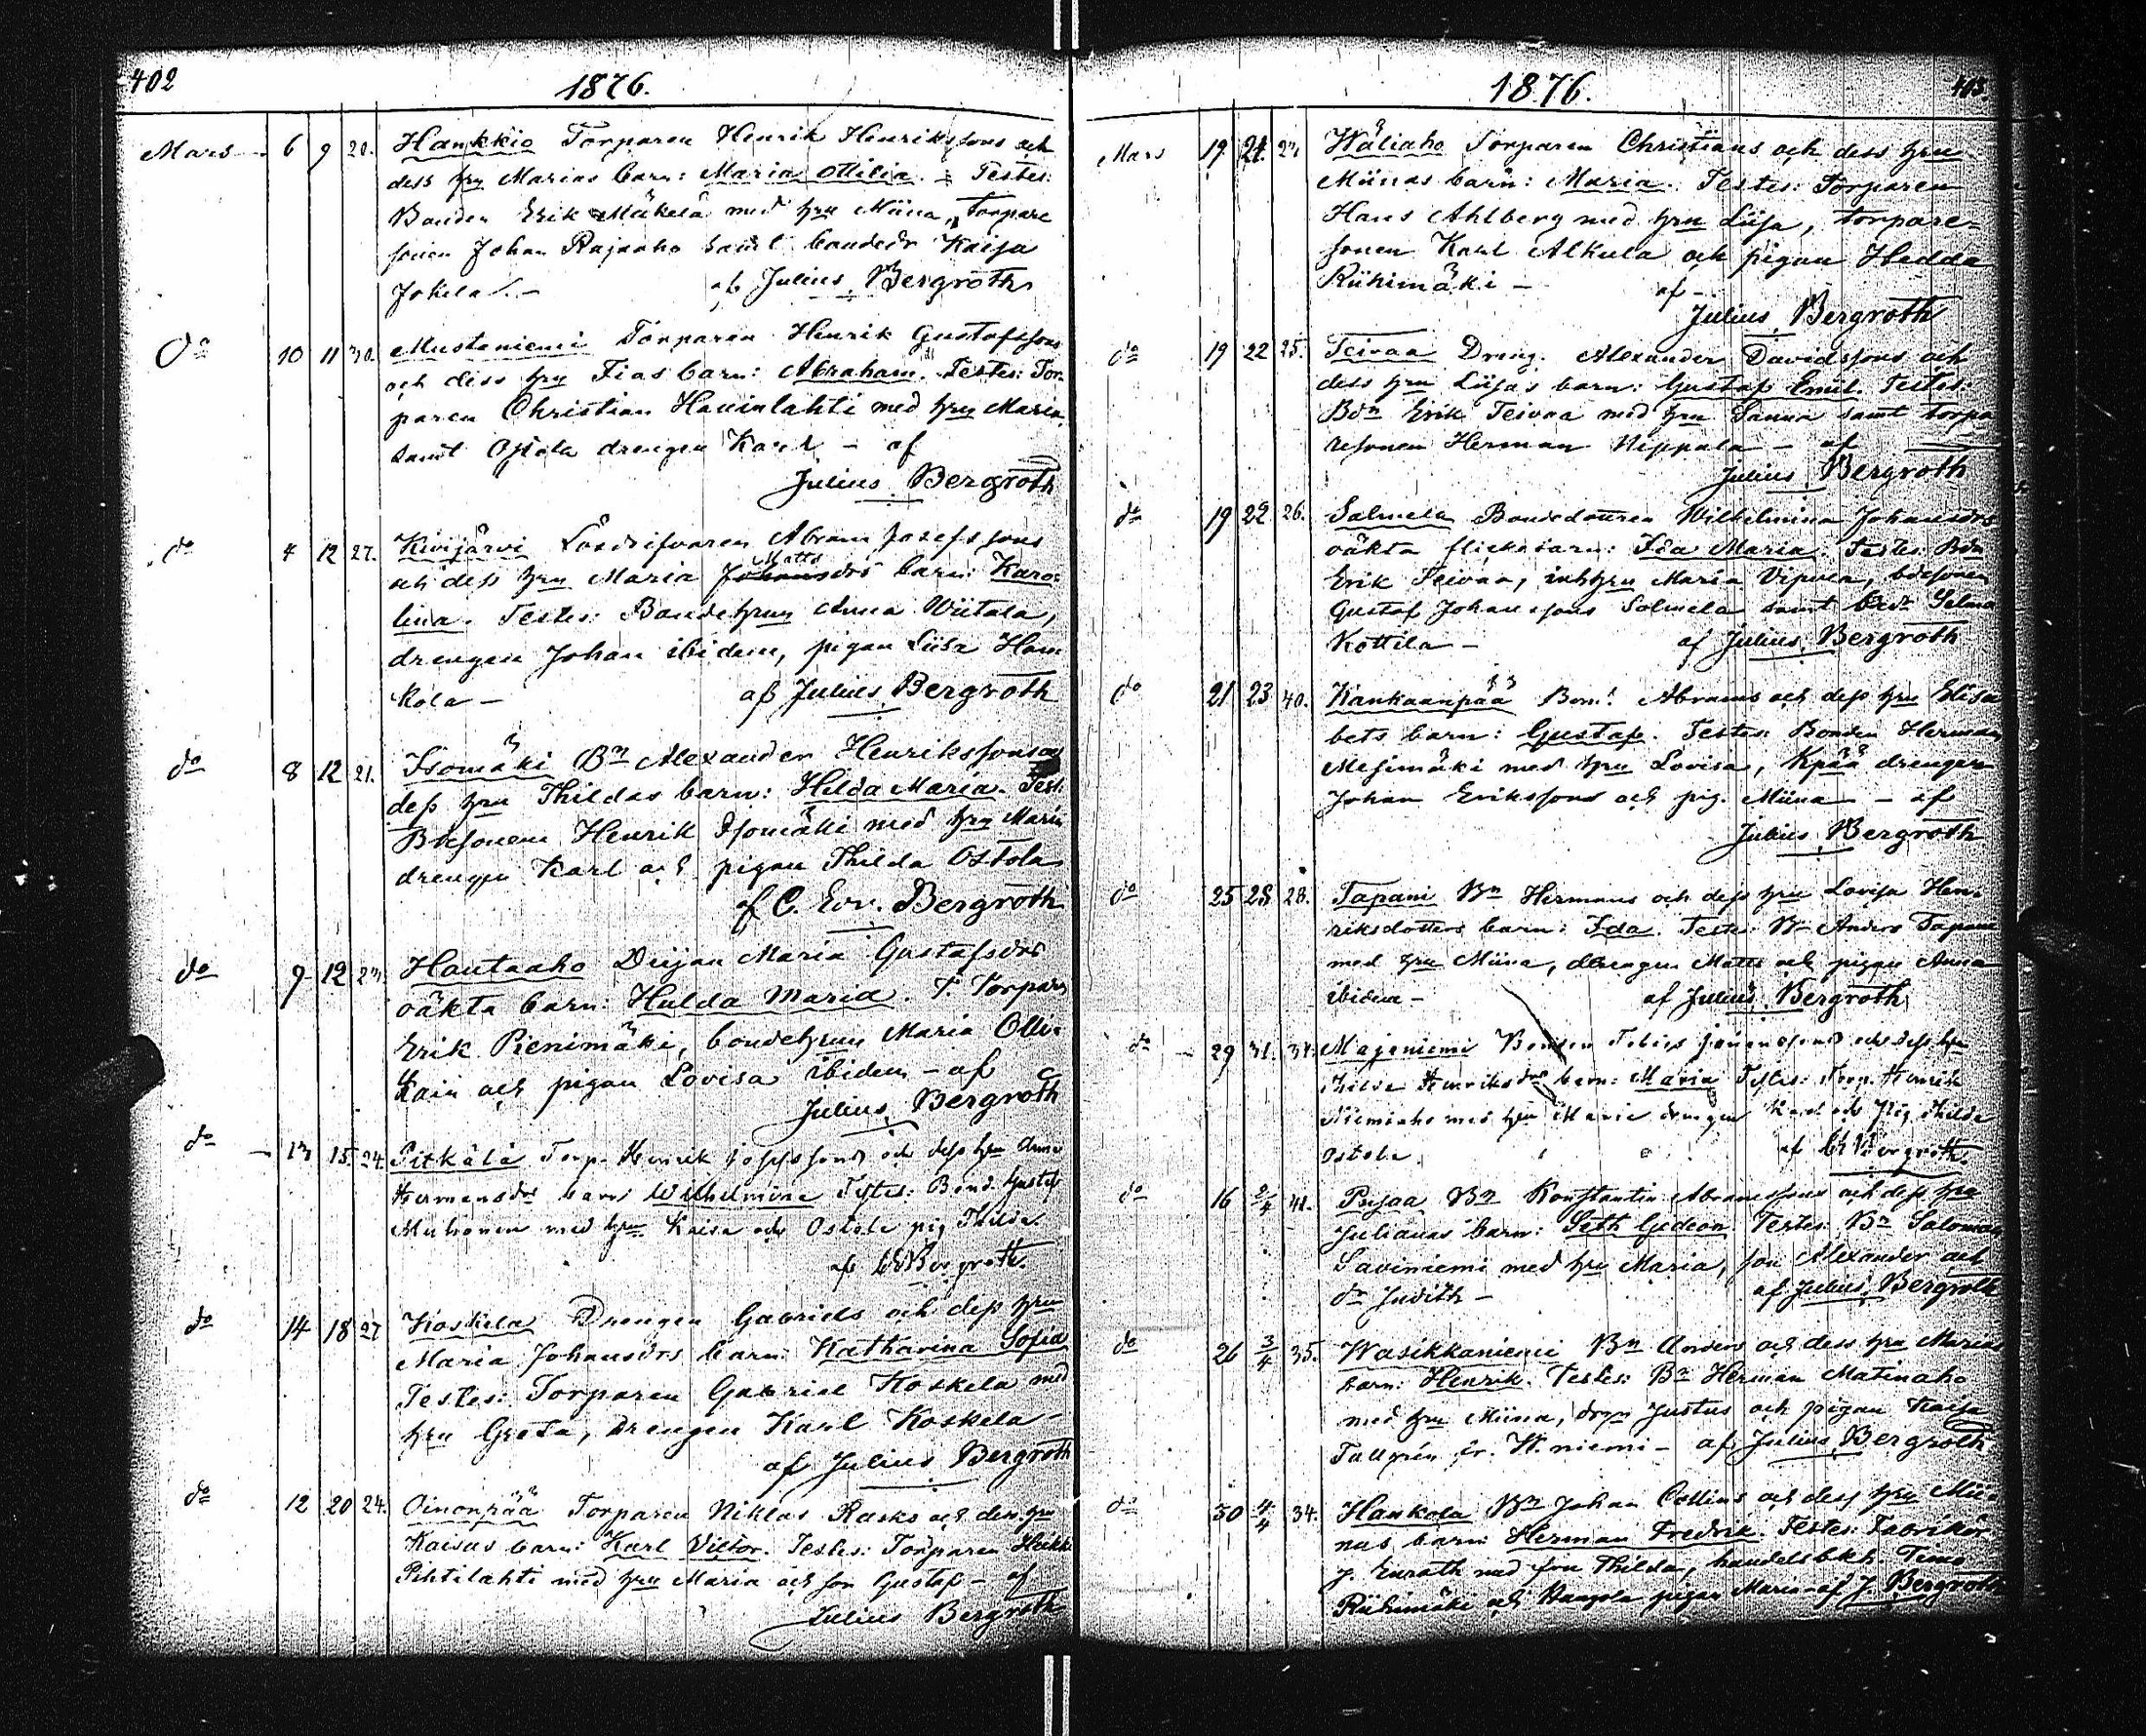 402
1876.
Mars 6 9 20. Hankkio Torparen Henrik Henrikssons och
dess hru Marias barn: Maria Ottilia. - Testes:
Bonden Erik Mäkelä med hru Miina, Torpare
sonen Johan Rajaaho samt bondedr Kaisa
Jokela. - af Julius Bergroth
Do 10 11 30. Mustaniemi Torparen Henrik Gustafssons
och dess hru Fias barn: Abraham. Testes: Tor-
paren Christian Hauinlahti med hru Maria
samt Ostola drengen Karl - af
Julius Bergroth
do 4 12 27. Kivijärvi Lösdrifvaren Abram Josefssons
och dess hru Maria Johansdrs Matts barn: Karo-
lina. Testes: Bondehrun Anna Wiitala,
drengen Johan ibidem, pigan Liisa Hon
kola - af Julius Bergroth
do 8 12 21. Isomäki Bn Alexander Henrikssons och
dess hru Thildas barn: Hilda Maria. Test:
Bdesonen Henrik Isomäki med hru Maria
drengen Karl och pigan Thilda Ostola
af C. Edv. Bergroth
do 9 12 23 Hautaaho Deijan Maria Gustafsdrs
oäkta barn: Hulda Maria. T. Torparn
Erik Pienimäki, bondehrun Maria Olli-
kain och pigan Lovisa ibidem - af
Julius Bergroth
do 13 15 24. Pitkälä Torp. Henrik Josefssons och dess hru Anna
Hermansdrs barn Wilhelmina Testes: Bond. Gustaf
Muhonen med hru Kaisa och Ostola pig Thilda.
af CEBergroth.
do 14 18 27 Koskela Drengen Gabriels och dess hru
Maria Johansdrs barn: Katharina Sofia
Testes: Torparen Gabriel Koskela med
hru Greta, Drengen Karl Koskela -
af Julius Bergroth
do 12 20 24. Oinonpää Torparen Niklas Rasks och dess hru
Kaisas barn: Karl Victor. Testes: Torparen Heikki
Pihtilahti med hru Maria och son Gustaf - af
Julius Bergroth
1876.
403.
Mars 19 21. 23 Wäliaho Torparen Christians och dess hru
Miinas barn: Maria. Testes: Torparen
Hans Ahlberg med hru Liisa, torpare-
sonen Karl Alkula och pigan Hedda
Riihimäki - af -
Julius Bergroth
do 19 22 25. Teivaa Dreng. Alexander Davidssons och
dess hru Liisas barn: Gustaf Emil. Testes:
Bdn Erik Teivaa med hru Sanna samt torpa
resonen Herman Nippala - af
Julius Bergroth
do 19 22 26. Salmela Bondedottren Wilhelmina Johansdrs
oäkta flickebarn: Ida Maria. Testes: Bdn
Erik Teivaa, inhhru Maria Vipuja, bdesonen
Gustaf Johanssons Salmela samt bdr Selma
Kottila - af Julius Bergroth
do 21 23 40. Kankaanpää Bon: Abrams och dess hru Elisa
bets barn: Gustaf. Testes: Bonden Herman
Mesimäki med hru Lovisa, Kpää drengen
Johan Erikssons och pig. Miina - af
Julius Bergroth
do 25 28 28. Tapani Bn Hermans och dess hru Lovisa Hen-
riksdotters barn: Ida. Testes: Bn Anders Tapani
med hru Miina, drengen Matts och pigan Anna
ibidem - af Julius Bergroth
do 29 31. 34. Majaniemi Bonden Tobias Johanssons och dess hru
Thilda Henriksdrs barn: Maria Testes: Torp. Henrik
Niemiaho med hru Maria drengen Karl och pig Thilda
Ostola. af CEBergroth.
do 16 2/4 41. Pusaa Bn Konstantin Abramssons och dess hru
Julianas barn: Seth Gideon. Testes: Bn Salomon
Saviniemi med hru Maria, son Alexander och
dr Judith - af Julius Bergroth
do 26 3/4 35. Wasikkaniemi Bn Anders och dess hru Marias
barn: Henrik. Testes: Bn Herman Matinaho
med hru Miina, drgn Justus och pigan Kaisa
Tallgrén fr. W.niemi - af Julius Bergroth
do 30 4/4 34. Hankola Bn Johan Collins och dess hru Mii-
nas barn: Herman Fredrik. Testes: Fabrikör
J. Enroth med fru Thilda, handelsbkh. Timo
Riihimäki och Haapola pigan Maria - af J. Bergroth